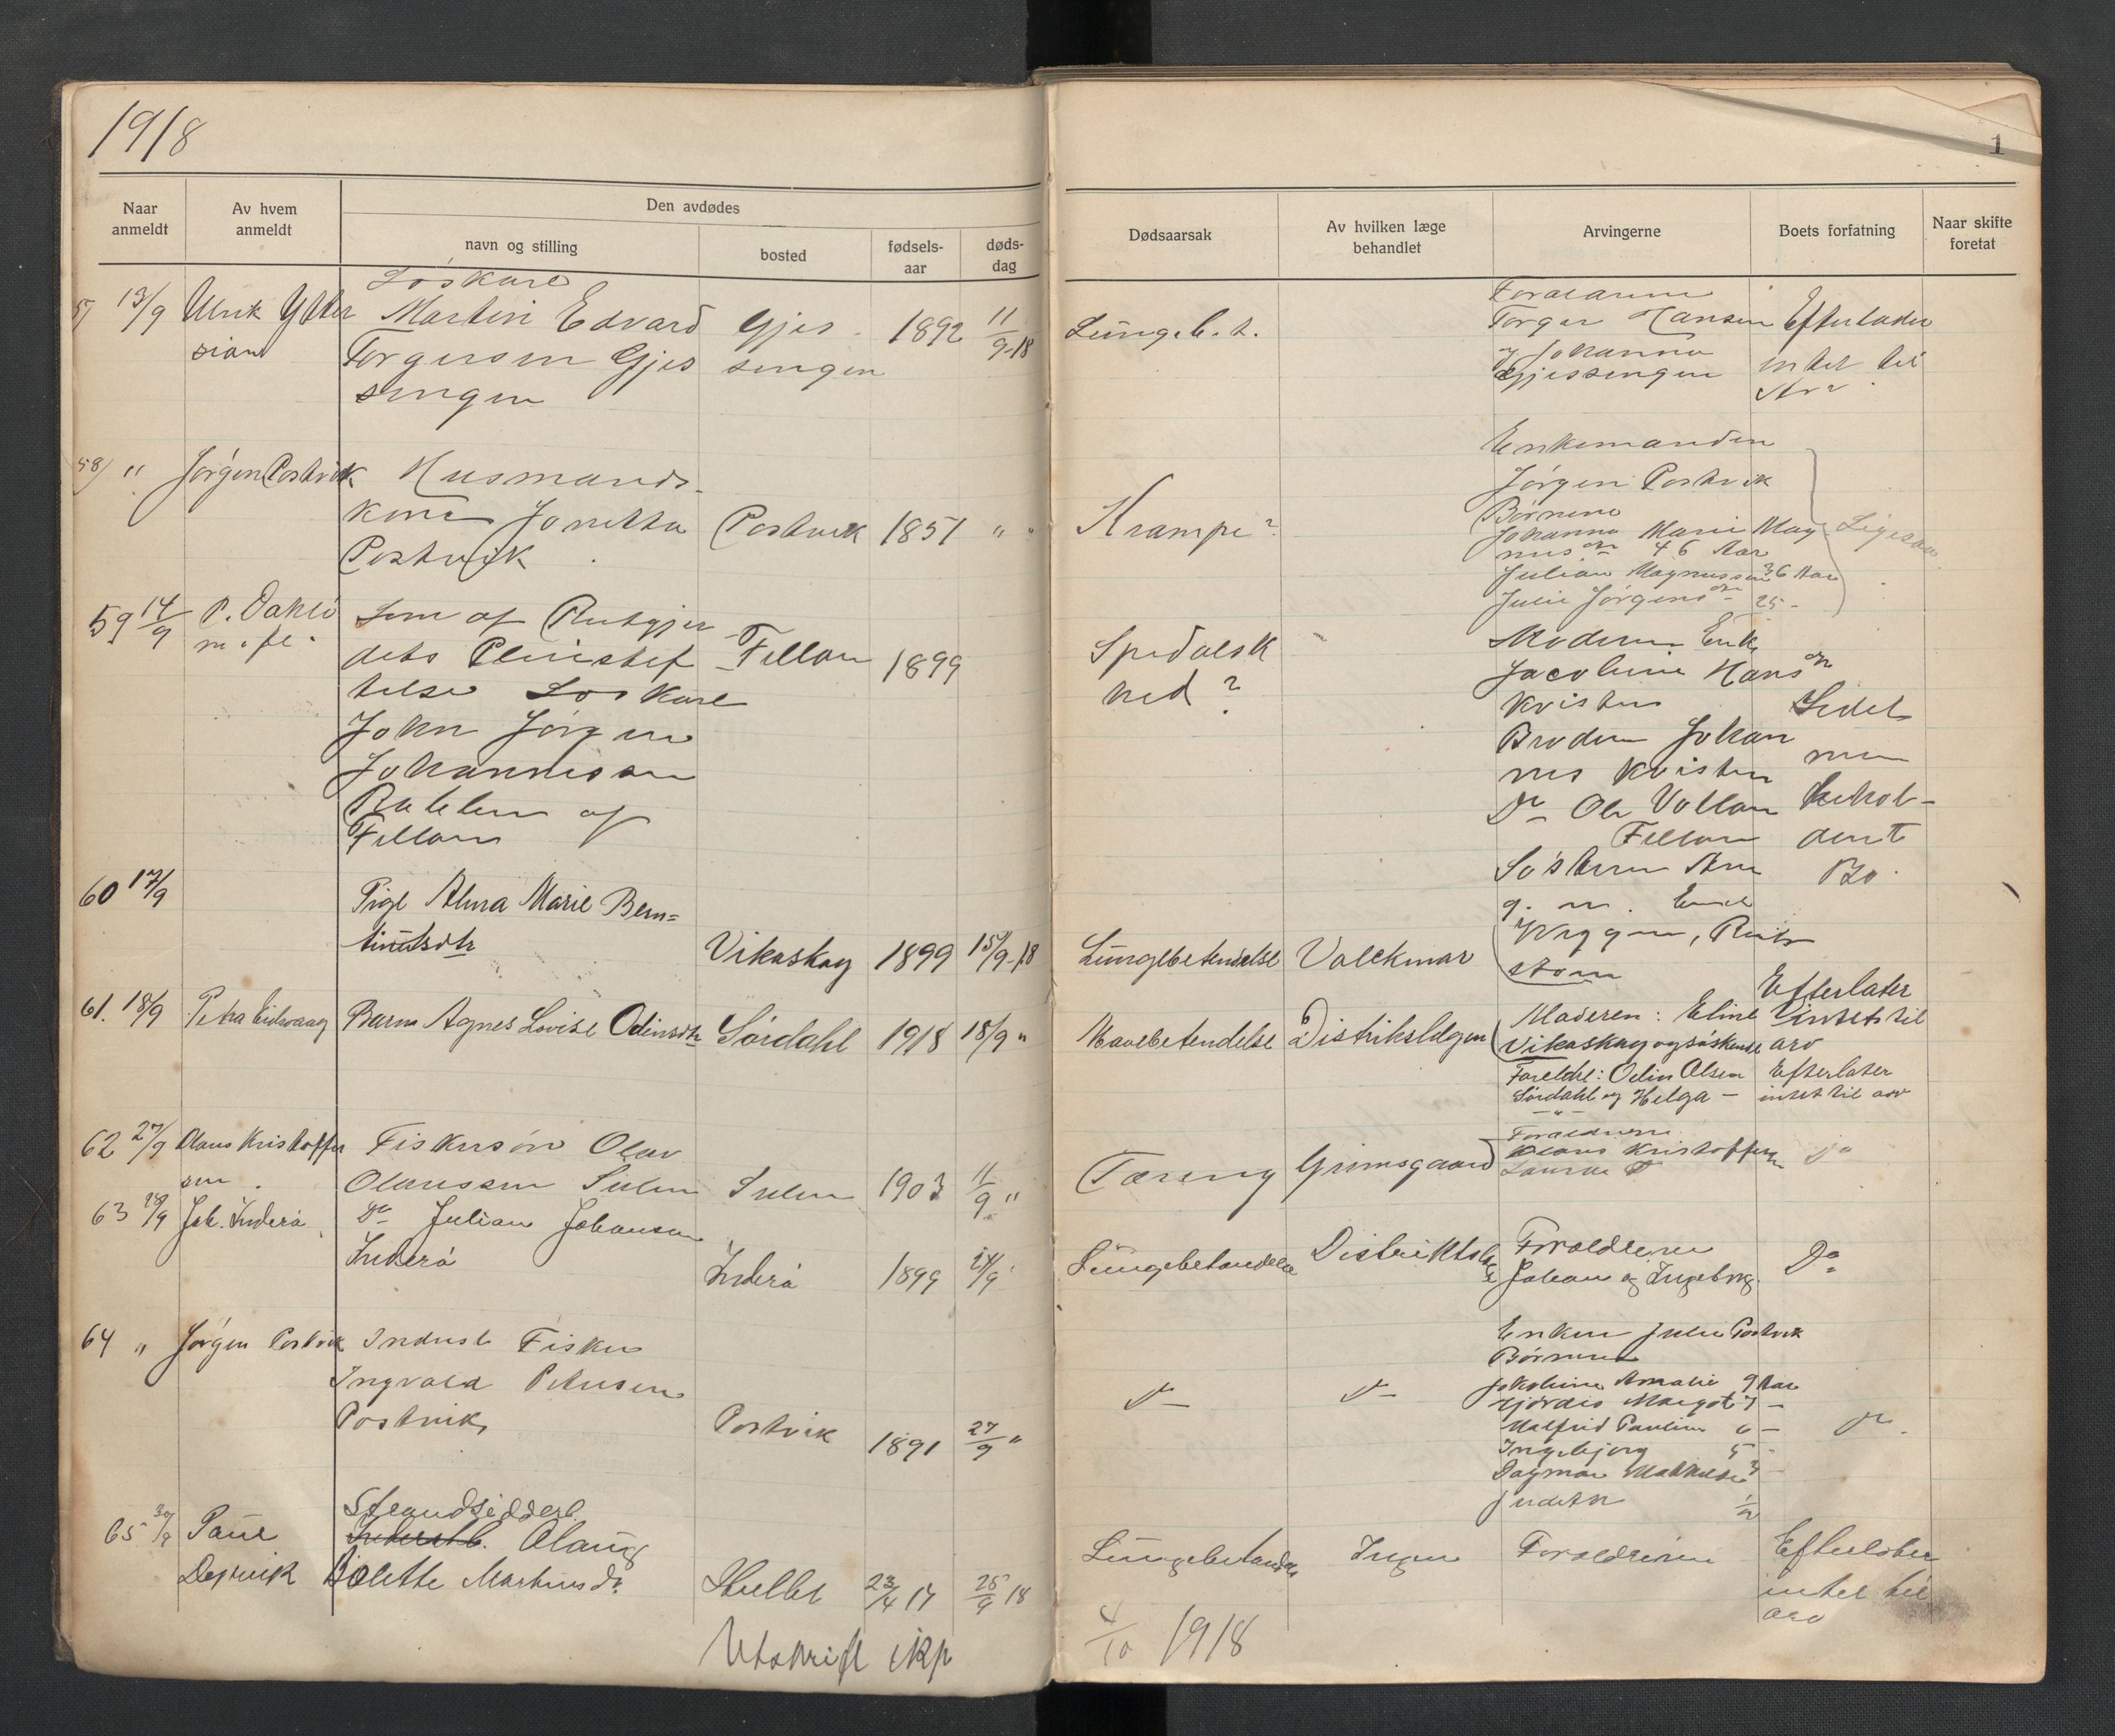 1918
1
Naar anmeldt
Av hvem anmeldt
Den avdødes
navn og stilling
bosted
fødsels-aar
døds-dag
Dødsaarsak
Av hvilken læge behandlet
Arvingerne
Boets forfatning
Naar skifte foretat
57 13/9 Ulrik Ytter
sian
Löskarl
Martin Edvard
Torgersen Gjes
singen
Gjes
singen
1892
11/9-18
Lungeb.t.
Torger Hansen
Johanna
Gjessingen
Efterlader
intet til
Arv
58/ " Jörgen Postvik
Husmands-
kone Jonetta
Postvik
Postvik
1851
" "
Krampe?
Enkemanden
Jörgen Postvik
Börnene
Johanna Marie Mag
nusdtr 46 Aar
Julian Magnussen 36 Aar
Julie Jörgensdtr 25 -
59 14/9 P. Dahlö
m. fl.
Söm af
Löskarl
John Jörgen
Johannesen
af
Fillan
Fillan
1899
Spedalsk
hed?
Moderen Enke
Jacobine Hansdtr
Kvisten
Broderen Johan
nes Kvisten
Do Ole Vollan
Fillan
Sösteren
g. m.
60 17/9
Pige Alma Marie Bern=
tinusdtr
Vikaskag
1899
15/9-18
Lungebetendelse
Volckmar
Moderen: Eline
Vikaskag og söskende
Efterlater
intet til
arv
61. 18/9 Petra Eidsvaag
Barn Agnes Lovise Odinsdtr
Sördahl
1918
18/9 "
Mavebetendelse
Distriktslægen
Foreldre: Odin Olsen
Sördahl og Helga -
Efterlater
intet til arv
62 27/9 Olaus Kristoffer
sen.
Fiskersön Olav
Olaussen Sulen
Sulen
1903
11/9 "
Tæring
Grimsgaard
Forældrene
Olaus Kristoffersen
Do
63 28/9 Joh. Inderö
Do Julian Johansen
Inderö
Inderö
1899
24/9
Lungebetændelse
Distriktslæge
Forældrene
Johan og Ingeborg.
Do
64 " Jörgen Postvik
Inderst Fisker
Ingvald Petersen
Postvik
Postvik
1891
27/9 "
Do
Do
Enken Julie Postvik
Börnene
Jakobine Amalie 9 Aar
Hjördis Margot 7 -
Malfrid Pauline 6 -
Ingebjorg 5 -
Dagmar Mathilde 3 -
Judith 1/2
Do
65 30/9 Paul
Strandsidderb.
Inderstb. Olaug
Bolette Martinsdtr
Hullet
23/4 17
25/9 18
Lungebetændelse
Ingen
Forældrene
Efterlater
intet til
arv
Utskrift
4/10 1918